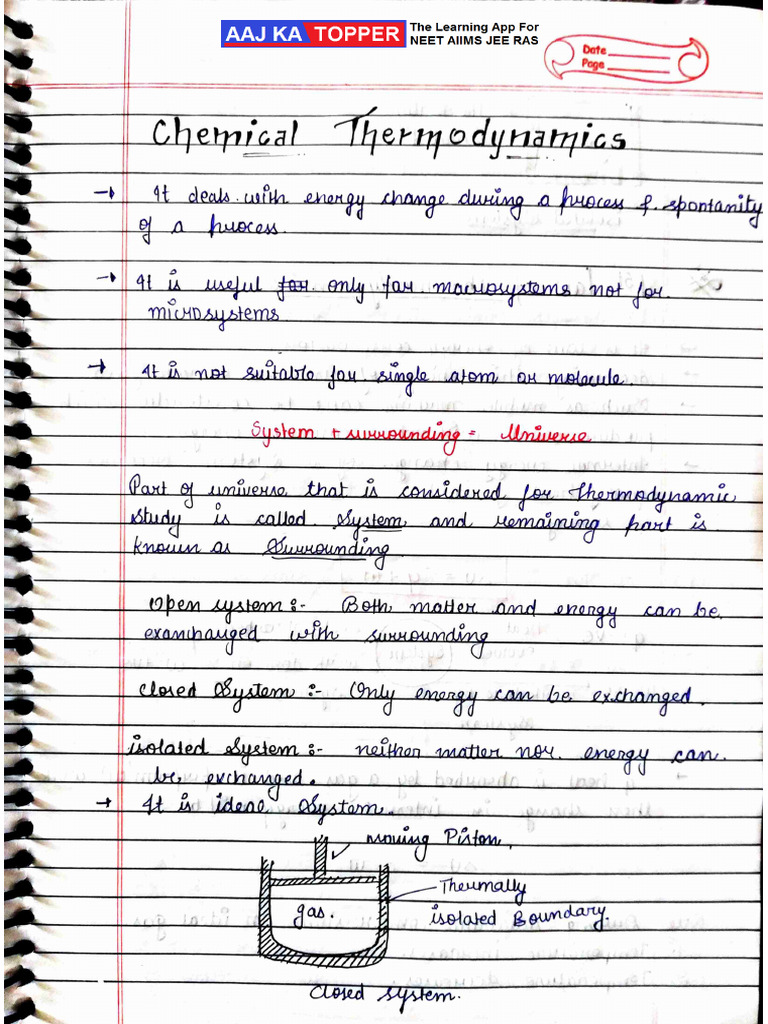 AAJ KA TOPPER
The Learning App For
NEET AIIMS JEE RAS
Date
Page
Chemical Thermodynamics
→ It deals with energy change during a process & spontanity
of a process.
→ It is useful for only for macrosystems not for
microsystems
→ It is not suitable for single atom or molecule
System + surrounding = Universe
Part of universe that is considered for thermodynamic
study is called System and remaining part is
known as Surrounding
Open system :- Both matter and energy can be
examchanged with surrounding
Closed System :- Only energy can be exchanged.
isolated System :- neither matter nor energy can
be exchanged.
→ It is ideal System.
moving Piston.
Thermally
gas.
isolated Boundary.
Closed system.